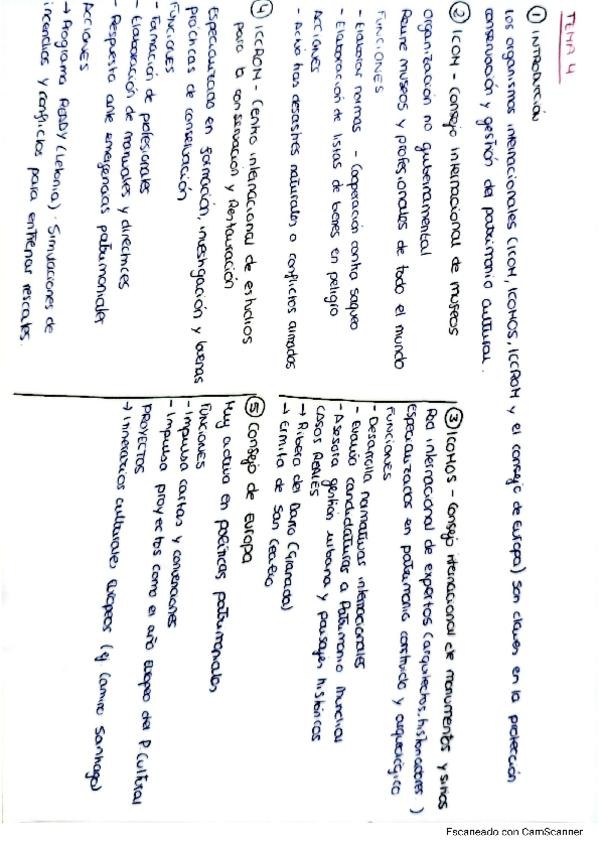 TEMA 4
① INTRODUCCIÓN
Los organismos internacionales (ICOM, ICOMOS, ICCROM y el consejo de Europa) son claves en la protección
conservación y gestión del patrimonio cultural.
② ICOM - Consejo internacional de museos
Organización no gubernamental
Reune museos y profesionales de todo el mundo
FUNCIONES
- Elaborar normas - Cooperación contra saqueo
- Elaboración de listas de bienes en peligro
ACCIONES
- Actúa tras desastres naturales o conflictos armados
③ ICOMOS - Consejo internacional de monumentos y sitios
Red internacional de expertos (arquitectos, historiadores)
Especializados en patrimonio construido y arqueológico
FUNCIONES
- Desarrolla normativas internacionales
- Evalúa candidaturas a Patrimonio Mundial
- Asesora gestión urbana y paisajes históricos
CASOS REALES
→ Ribera del Darro (Granada)
→ Ermita de San
④ ICCROM - Centro internacional de estudios
para la conservación y Restauración
Especializado en formación, investigación y buenas
prácticas de conservación
FUNCIONES
- Formación de profesionales
- Elaboración de manuales y directrices
- Respuesta ante emergencias patrimoniales
ACCIONES
→ Programa (Letonia). Simulaciones de
incendios y conflictos para entrenar rescates.
⑤ Consejo de Europa
Muy activo en políticas patrimoniales
FUNCIONES
- Impulsa cartas y convenciones
- Impulsa proyectos como el año Europeo del P. Cultural
PROYECTOS
→ Itinerarios culturales Europeos (ej Camino Santiago)
Escaneado con CamScanner